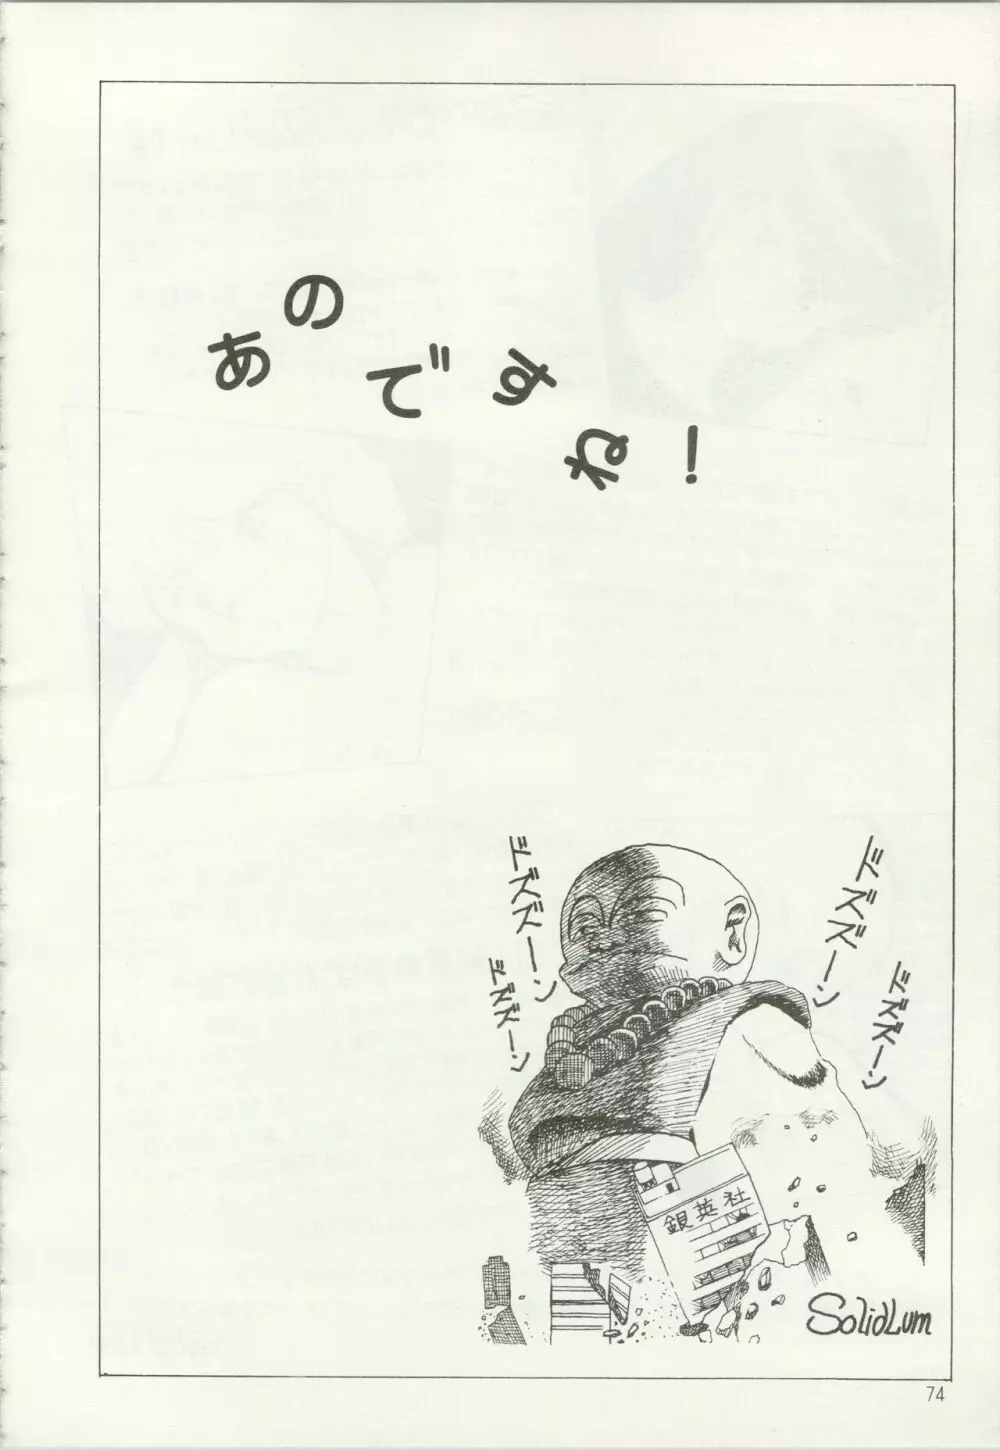 あのですね！
ドズズーン
ドズズーン
ドズズーン
ドズズーン
銀英社
SolidLum
74